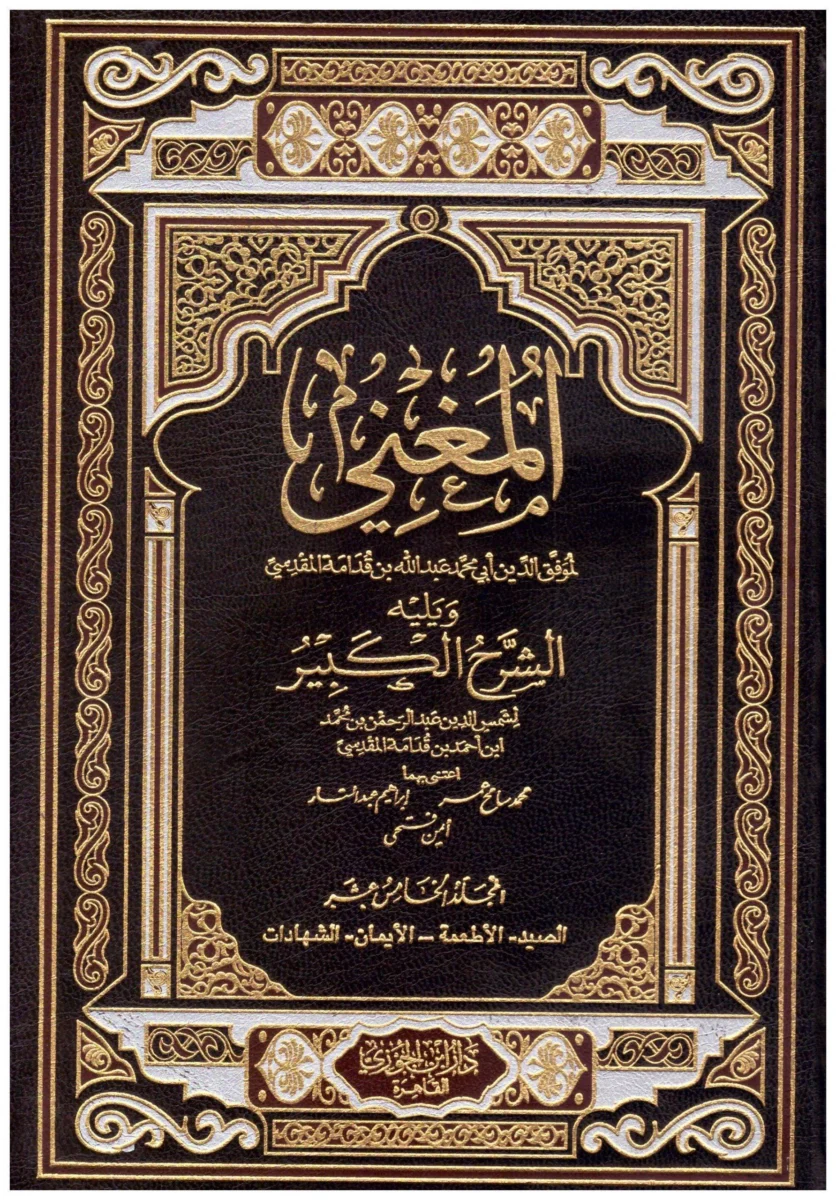 المُغْنِي
لمُوَفَّق الدِّين أبي محمَّد عَبد الله بن قُدَامَة المقْدِسِيّ
وَيَليْه
الشَّرْحُ الكَبِيْرُ
لِشمْسِ الدِين عَبد الرَّحمٰن بن مُحَمَّد
ابن أحمَد بن قُدَامَة المقْدِسِيّ
اعتنى بهما
محمد سامح عمر إبراهيم عبد الستار
أيمن فتحي
المجَلدُ الخَامِسُ عَشَر
الصيد - الأطعمة - الأيمان - الشهادات
دَارُ ابْن الجَوْزِي
القَاهِرَة